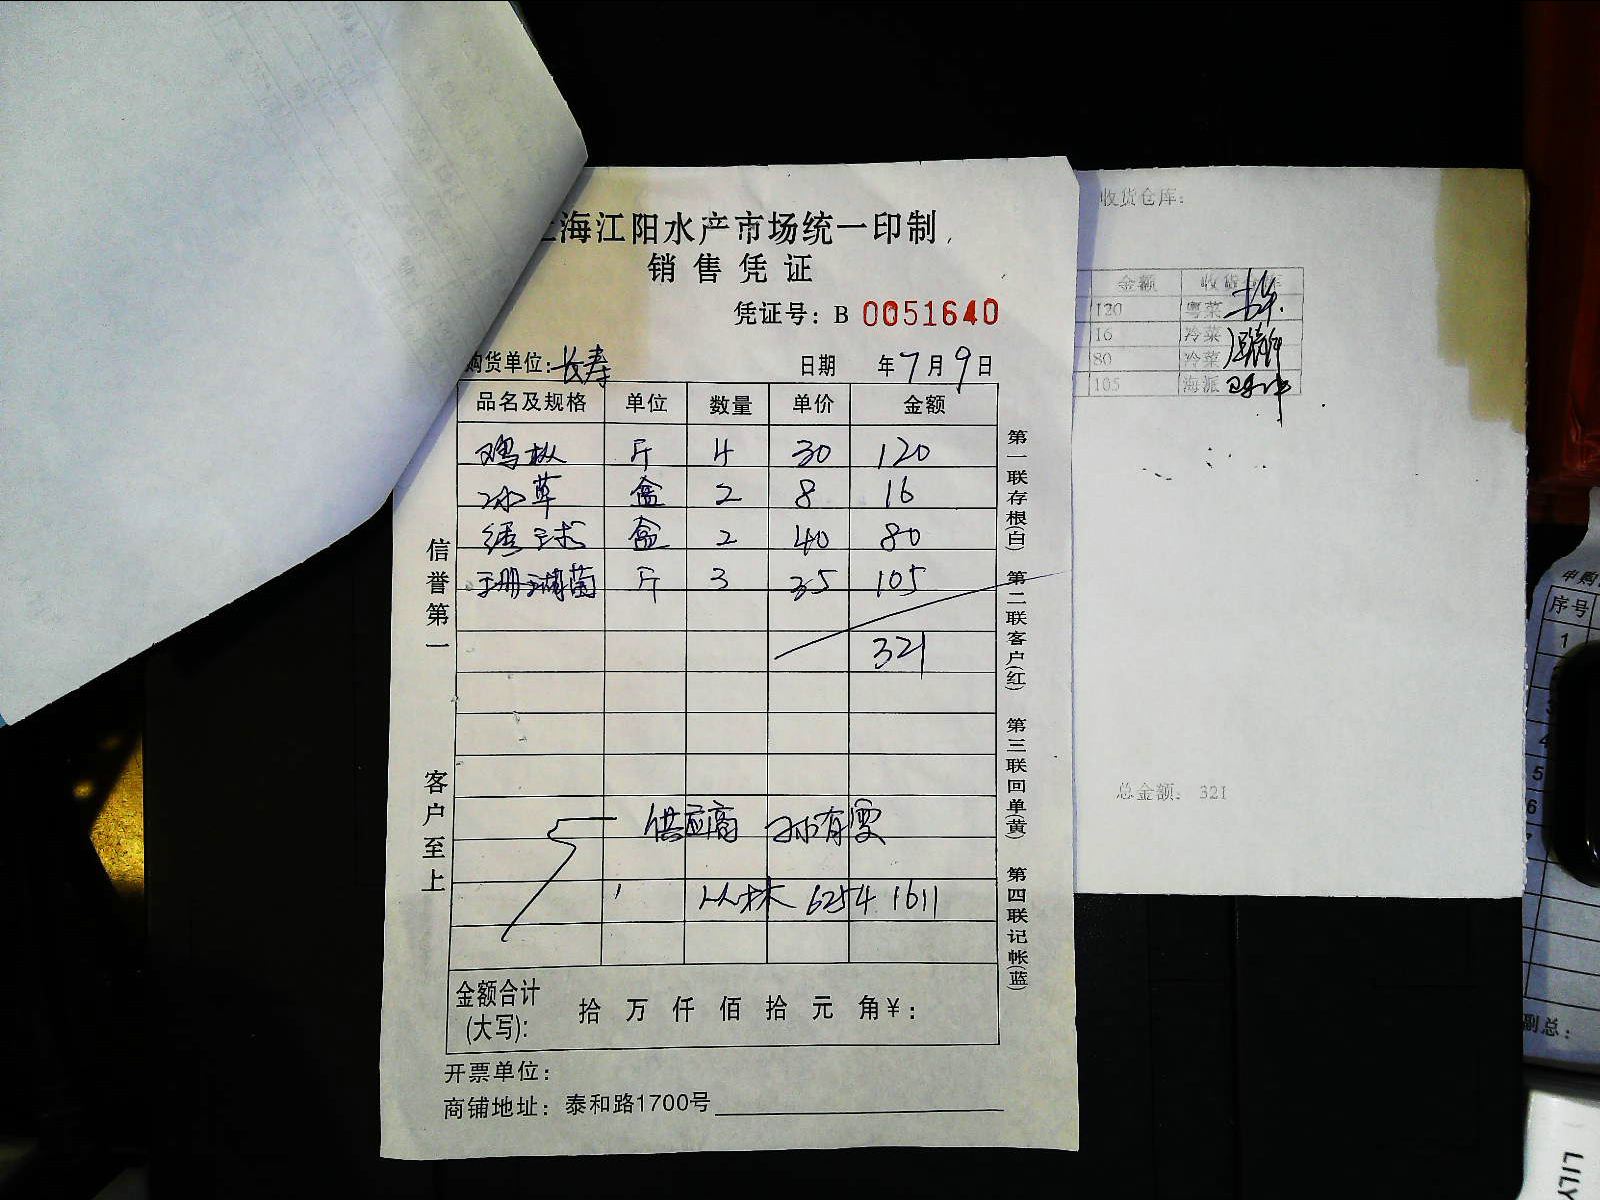 海江阳水产市场统一印制
销售凭证
凭证号: B 0051640
购货单位: 长寿 日期 年7月9日
品名及规格 单位 数量 单价 金额
鸡枞 斤 4 30 120
冰草 盒 2 8 16
绣球 盒 2 40 80
珊瑚菌 斤 3 35 105
321
供应商 孙有雯
丛林 6254 1611
金额合计
(大写): 拾 万 仟 佰 拾 元 角¥:
开票单位:
商铺地址: 泰和路1700号
信誉第一
客户至上
第一联存根(白)
第二联客户(红)
第三联回单(黄)
第四联记帐(蓝)
收货仓库:
金额 收货
120 粤菜
16 冷菜
80 冷菜
105 海派
总金额: 321
申购
序号
1
4
5
6
副总:
LILY